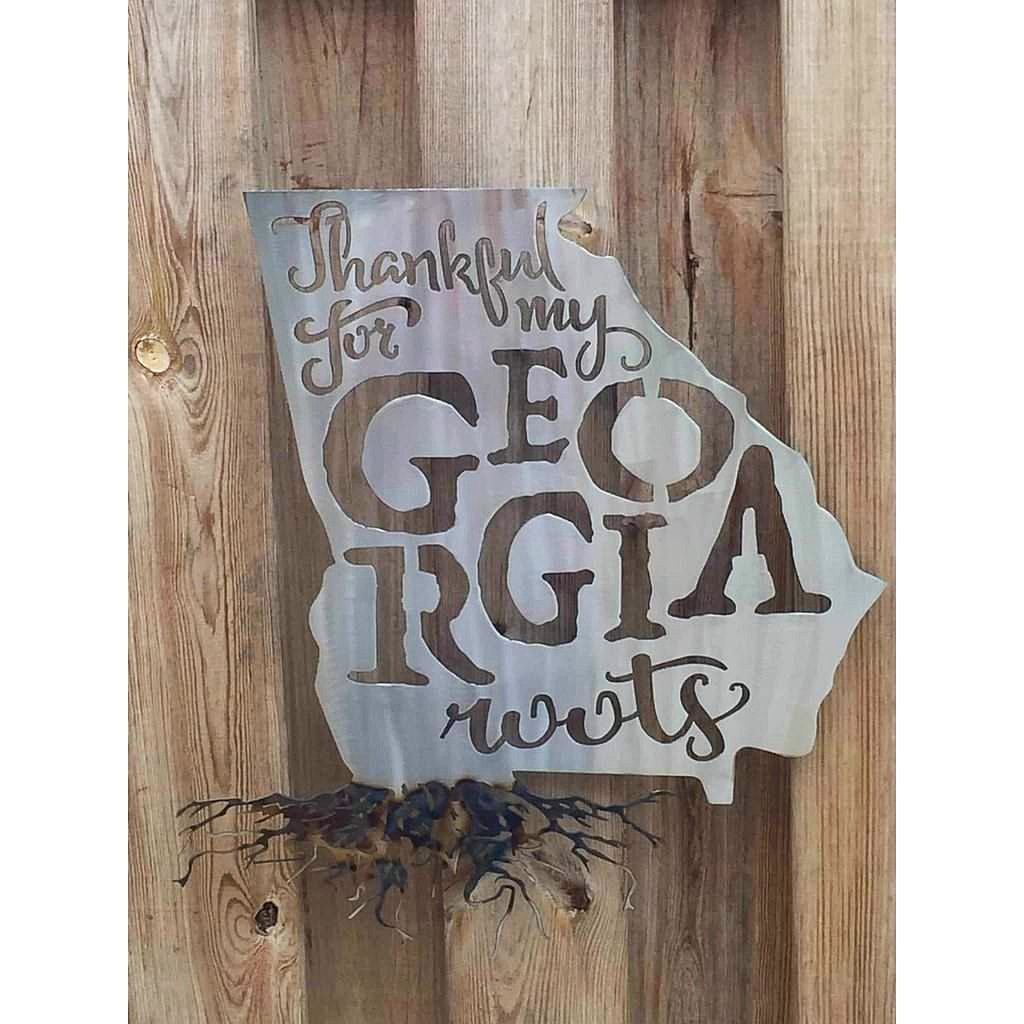 Thankful
for my
GEORGIA
roots